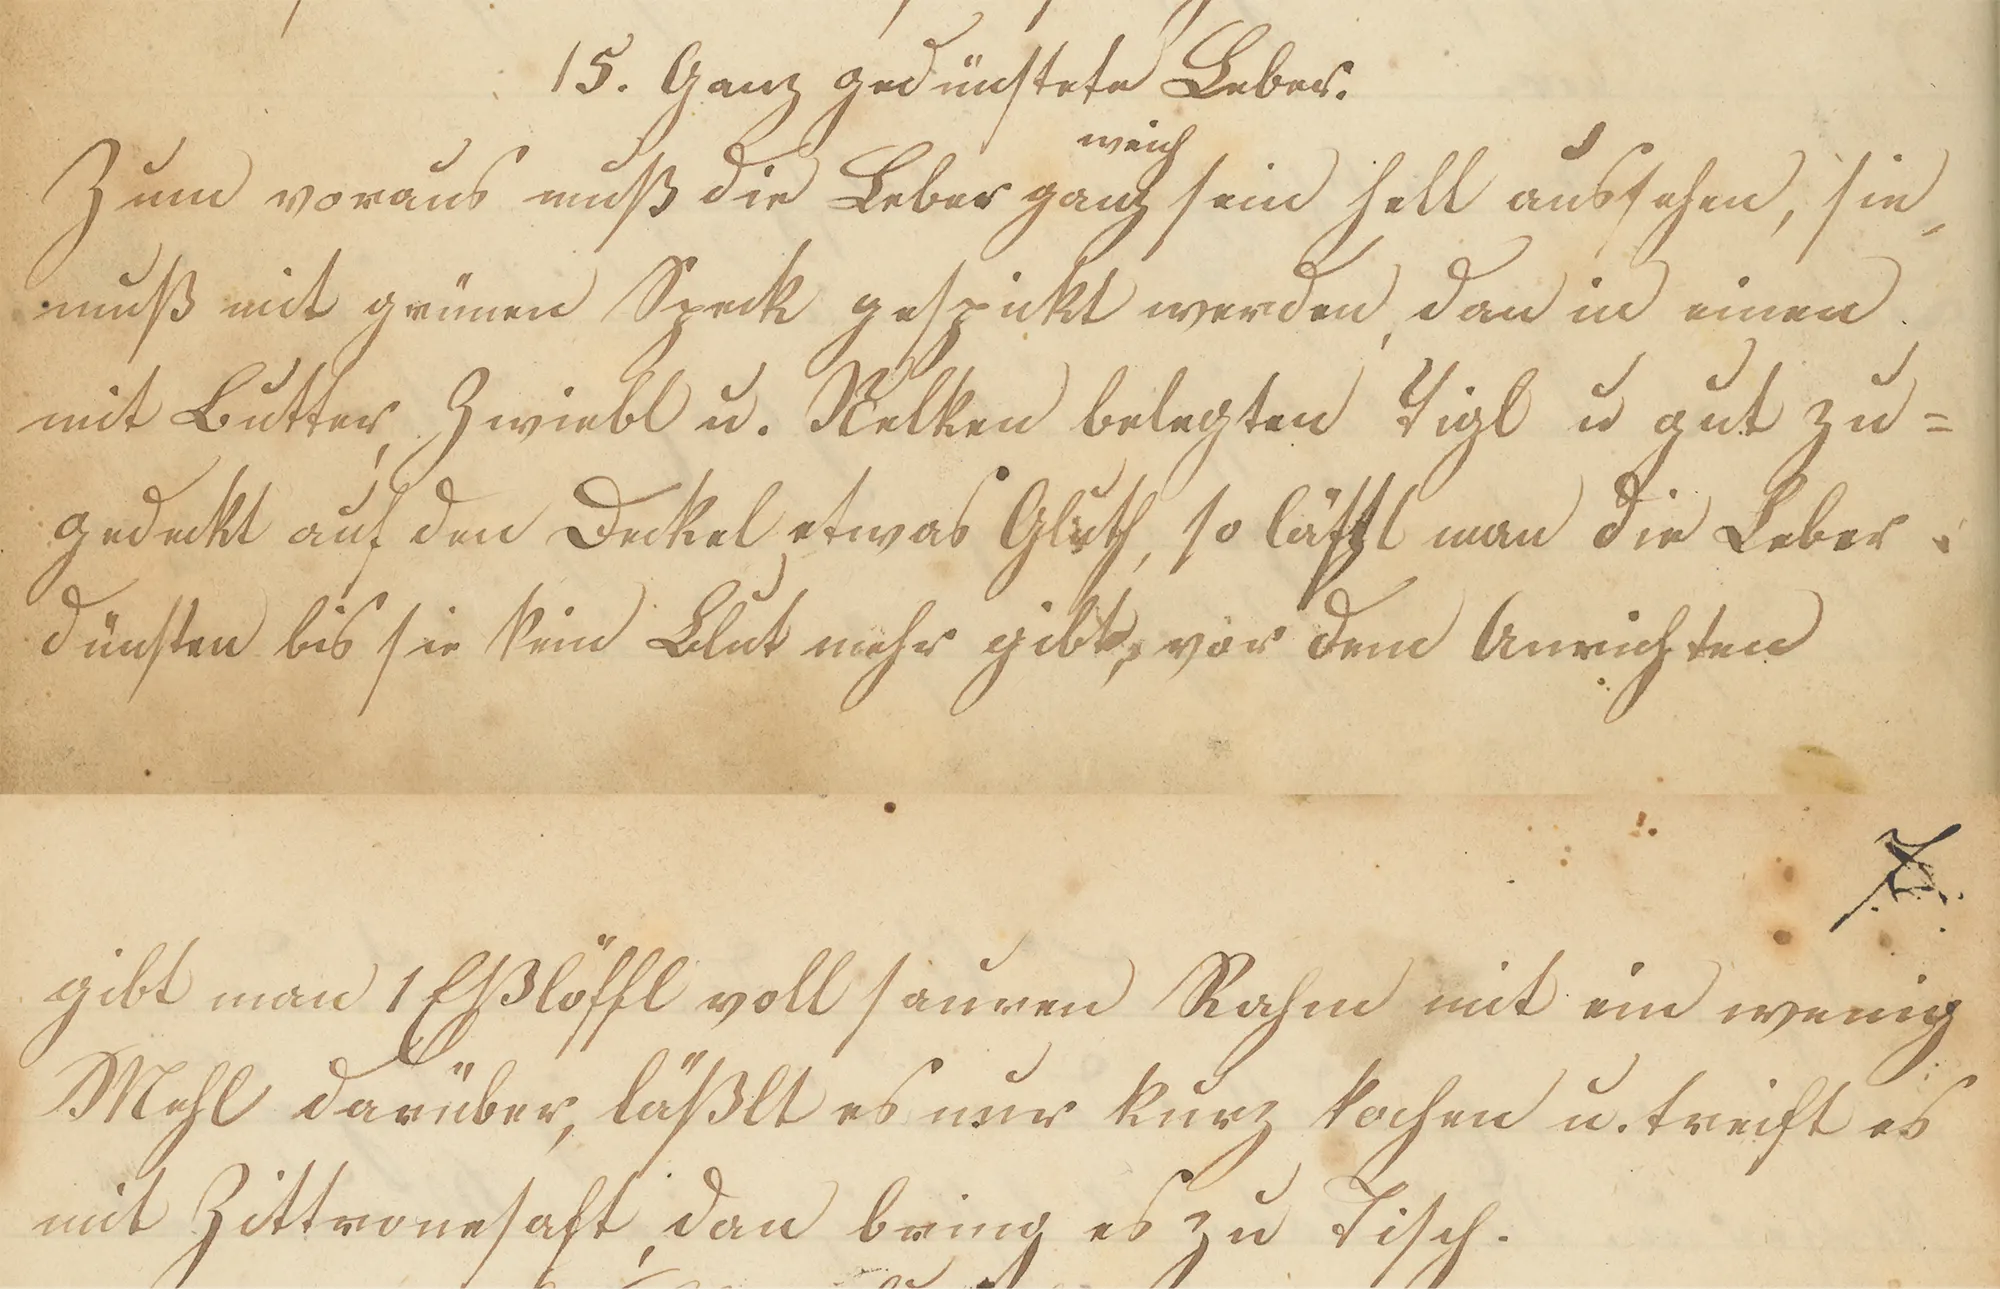 15. Ganz gedünstete Leber.
weich
Zum voraus muß die Leber ganz sein hell aussehen, sie
muß mit grünen Speck gespickt werden, dan in einen
mit Butter, Zwiebl u. Nelken belegten Tigl u gut zu=
gedeckt auf den Deckel etwas Gluth, so läßt man die Leber
dünsten bis sie kein Blut mehr gibt, vor dem Anrichten
gibt man 1 Eßlöffl voll sauren Rahm mit ein wenig
Mehl darüber, läßlt es nur kurz kochen u. treift es
mit Zittronesaft, dan bring es zu Tisch.